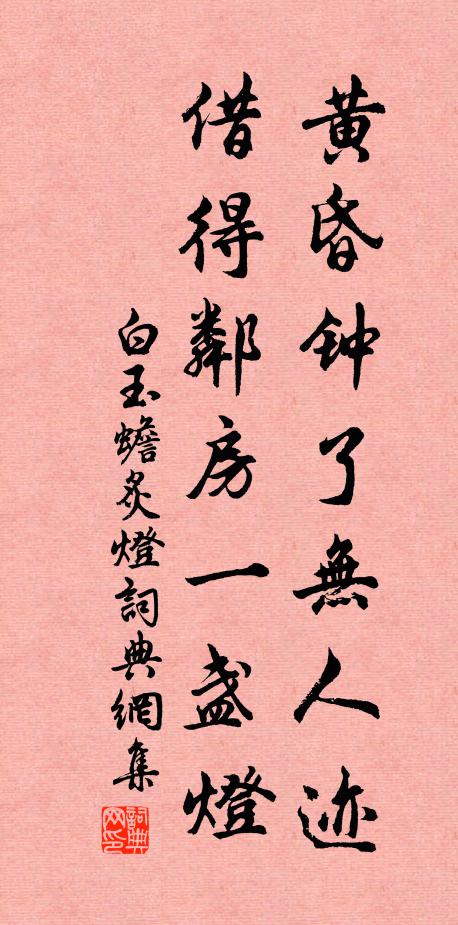 黄昏钟了無人迹
借得鄰房一盏燈
白玉蟾炙燈詞典網集
詞典网印